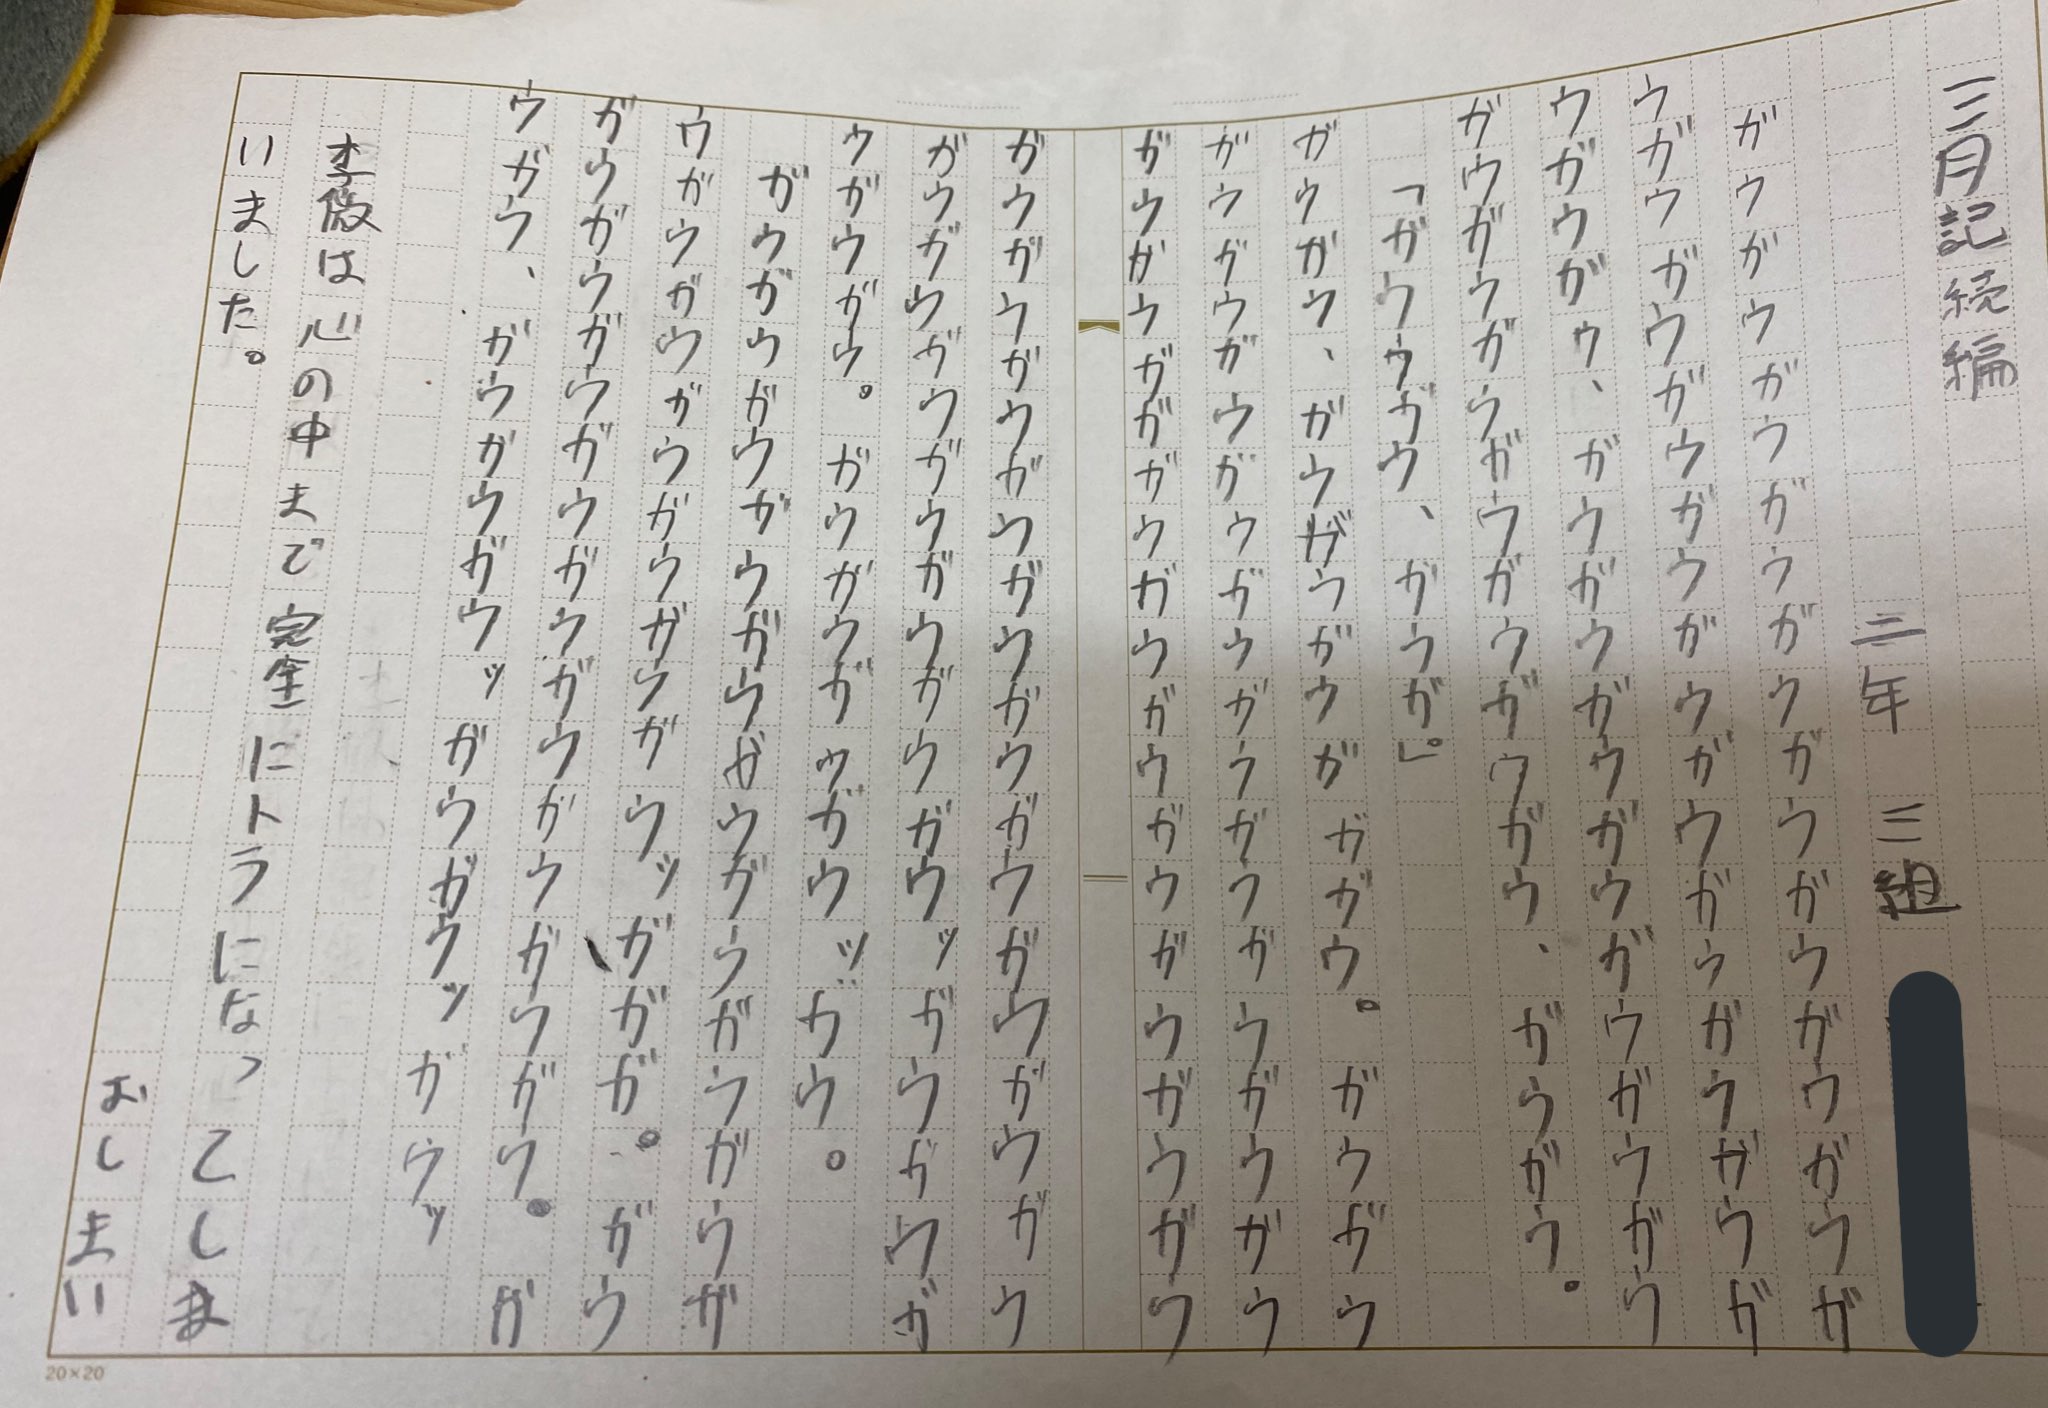 三月記続編
三年 三組
ガウガウガウガウガウガウガウガウガウガ
ウガウガウガウガウガウガウガウガウガウガ
ウガウガウ、ガウガウガウガウガウガウガウ
ガウガウガウガウガウガウガウ、ガウガウ。
「ガウウガウ、ガウガ。」
ガウガウ、ガウガウガウガガガウ。ガウガウ
ガウガウガウガウガウガウガウガウガウガウ
ガウガウガガガウガウガウガウガウガウガウ
ガウガウガウガウガウガウガウガウガウガウ
ガウガウガウガウガウガウガウッガウガウガ
ウガウガウ。ガウガウガウガウッガウ。
ガウガウガウガウガウガウガウガウガウガ
ウガウガウガウガウガウガウッガガガ。ガウ
ガウガウガウガウガウガウガウガウガウ。ガ
ウガウ、ガウガウガウッガウガウッガウッ
李徴は心の中まで完全にトラになってしま
いました。
おしまい
20×20